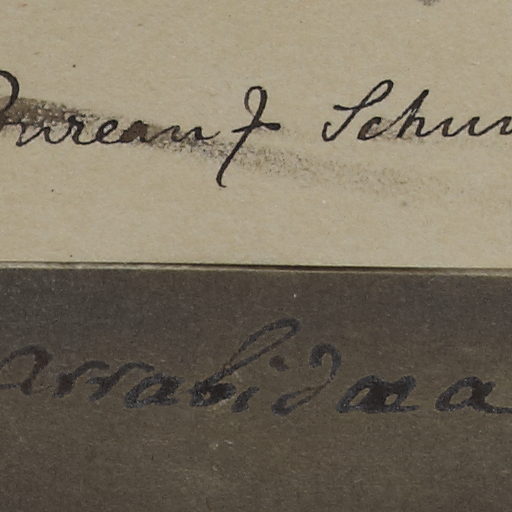 Bureau & Schum
Arrabidaea